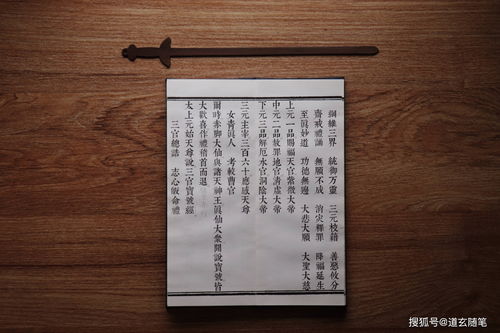 綱維三界　統御万靈　三元校籍　善惡攸分
齋戒禮誦　無願不成　消灾釋罪　降福延生
至眞妙道　功德無邊　大悲大願　大聖大慈
上元一品賜福天官紫微大帝
中元二品赦罪地官淸虛大帝
下元三品解厄水官洞陰大帝
三元主宰三百六十應感天尊
女青眞人　考較曹官
爾時赤脚大仙與諸天神王眞仙大衆聞說寶號皆
大歡喜作禮稽首而退
太上元始天尊說三官寶號經
三官總誥　志心皈命禮
搜狐号@道玄随笔